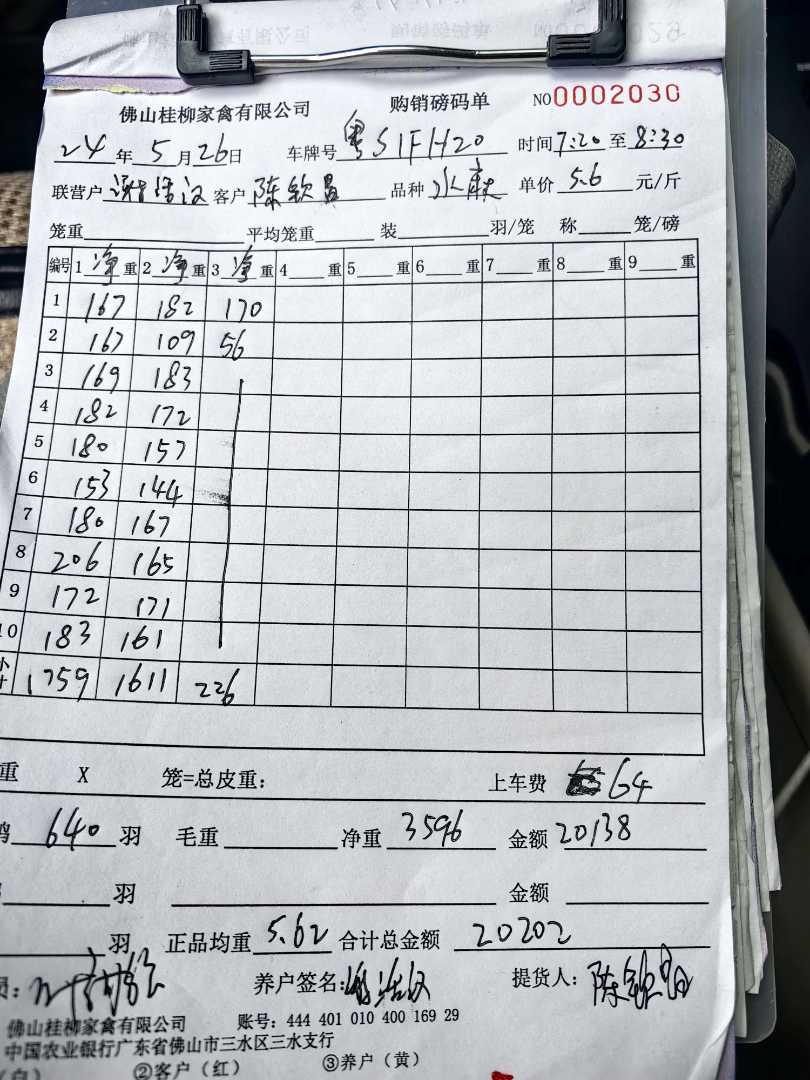 佛山桂柳家禽有限公司 购销磅码单 NO0002030
24年5月26日 车牌号粤S1FH20 时间7:20至8:30
联营户谢浩汉 客户陈钦昌 品种水麻 单价5.6元/斤
笼重 平均笼重 装 羽/笼 称 笼/磅
编号 1净重 2净重 3净重 4 重 5 重 6 重 7 重 8 重 9 重
1 167 182 170
2 167 109 56
3 169 183
4 182 172
5 180 157
6 153 144
7 180 167
8 206 165
9 172 171
10 183 161
小计 1759 1611 226
重 X 笼=总皮重: 上车费 64
鸡 640羽 毛重 净重3596 金额20138
羽 金额
羽 正品均重5.62 合计总金额 20202
员: 养户签名:谢浩汉 提货人: 陈钦昌
佛山桂柳家禽有限公司 账号: 444 401 010 400 169 29
中国农业银行广东省佛山市三水区三水支行
(白) ②客户(红) ③养户(黄)